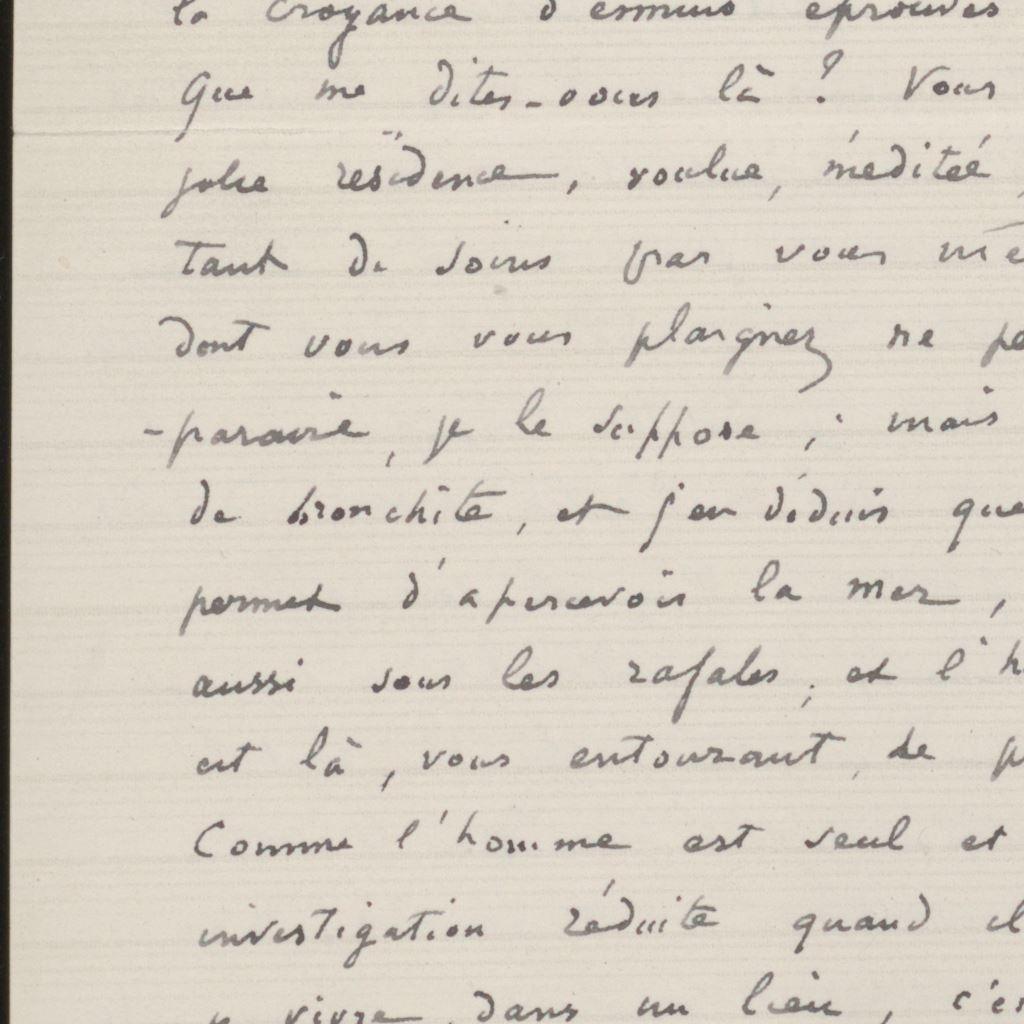 la croyance d'ennuis éprouvés
Que me dites-vous là ? Vous
jolie résidence, voulue, méditée,
tant de soins par vous mê
dont vous vous plaignez ne pe
-paraire, je le suppose ; mais
de bronchite, et j'en déduis que
permet d'apercevoir la mer,
aussi sous les rafales, et l'h
est là, vous entourant, de p
Comme l'homme est seul et
investigation réduite quand il
vivre dans un lieu, c'es